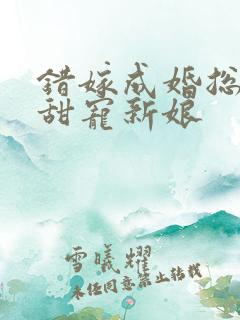 错嫁成婚总
甜宠新娘
雪曦耀
未经同意禁止转载